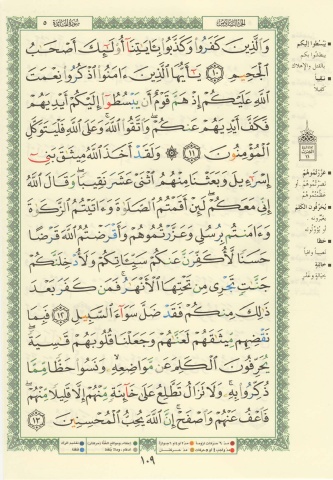 الجزء السادس
سورة المائدة ٥
وَالَّذِينَ كَفَرُوا۟ وَكَذَّبُوا۟ بِـَٔايَـٰتِنَآ أُو۟لَـٰٓئِكَ أَصْحَـٰبُ
ٱلْجَحِيمِ ١٠ يَـٰٓأَيُّهَا ٱلَّذِينَ ءَامَنُوا۟ ٱذْكُرُوا۟ نِعْمَتَ
ٱللَّهِ عَلَيْكُمْ إِذْ هَمَّ قَوْمٌ أَن يَبْسُطُوٓا۟ إِلَيْكُمْ أَيْدِيَهُمْ
فَكَفَّ أَيْدِيَهُمْ عَنكُمْ ۖ وَٱتَّقُوا۟ ٱللَّهَ ۚ وَعَلَى ٱللَّهِ فَلْيَتَوَكَّلِ
ٱلْمُؤْمِنُونَ ١١ ۞ وَلَقَدْ أَخَذَ ٱللَّهُ مِيثَـٰقَ بَنِىٓ
إِسْرَٰٓءِيلَ وَبَعَثْنَا مِنْهُمُ ٱثْنَىْ عَشَرَ نَقِيبًا ۖ وَقَالَ ٱللَّهُ
إِنِّى مَعَكُمْ ۖ لَئِنْ أَقَمْتُمُ ٱلصَّلَوٰةَ وَءَاتَيْتُمُ ٱلزَّكَوٰةَ
وَءَامَنتُم بِرُسُلِى وَعَزَّرْتُمُوهُمْ وَأَقْرَضْتُمُ ٱللَّهَ قَرْضًا
حَسَنًا لَّأُكَفِّرَنَّ عَنكُمْ سَيِّـَٔاتِكُمْ وَلَأُدْخِلَنَّكُمْ
جَنَّـٰتٍ تَجْرِى مِن تَحْتِهَا ٱلْأَنْهَـٰرُ ۚ فَمَن كَفَرَ بَعْدَ
ذَٰلِكَ مِنكُمْ فَقَدْ ضَلَّ سَوَآءَ ٱلسَّبِيلِ ١٢ فَبِمَا
نَقْضِهِم مِّيثَـٰقَهُمْ لَعَنَّـٰهُمْ وَجَعَلْنَا قُلُوبَهُمْ قَـٰسِيَةً ۖ
يُحَرِّفُونَ ٱلْكَلِمَ عَن مَّوَاضِعِهِۦ ۙ وَنَسُوا۟ حَظًّا مِّمَّا
ذُكِّرُوا۟ بِهِۦ ۚ وَلَا تَزَالُ تَطَّلِعُ عَلَىٰ خَآئِنَةٍ مِّنْهُمْ إِلَّا قَلِيلًا مِّنْهُمْ ۖ
فَٱعْفُ عَنْهُمْ وَٱصْفَحْ ۚ إِنَّ ٱللَّهَ يُحِبُّ ٱلْمُحْسِنِينَ ١٣
يبسطوا إليكم
يبطشوا بكم
بالقتل والإهلاك
نقيبا
كفيلا
عزرتموهم
نصرتموهم
يحرفون الكلم
يغيرونه
حظا
نصيبا وافيا
خائنة
خيانة وغدر
١٠٩